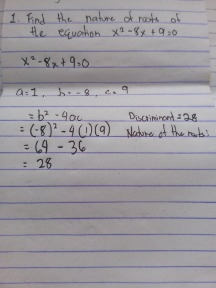 1. Find the nature of roots of
the equation x² - 8x + 9 = 0
x² - 8x + 9 = 0
a = 1, b = -8, c = 9
= b² - 4ac Discriminant = 28
= (-8)² - 4(1)(9) Nature of the roots:
= 64 - 36
= 28